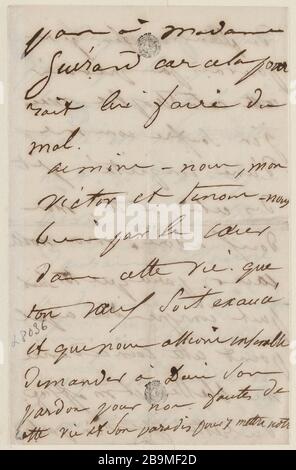 pas à madame
Guérard car cela pour
rait lui faire du
mal.
aimons-nous, mon
victor et tenons-nous
bien par le cœur
dans cette vie. que
ton vœu soit exaucé
et que nous allions ensemble
demander à Dieu son
pardon pour nos fautes de
cette vie et son paradis pour y mettre notre
28036
alamy
Image ID: 2C9MF2D
www.alamy.com